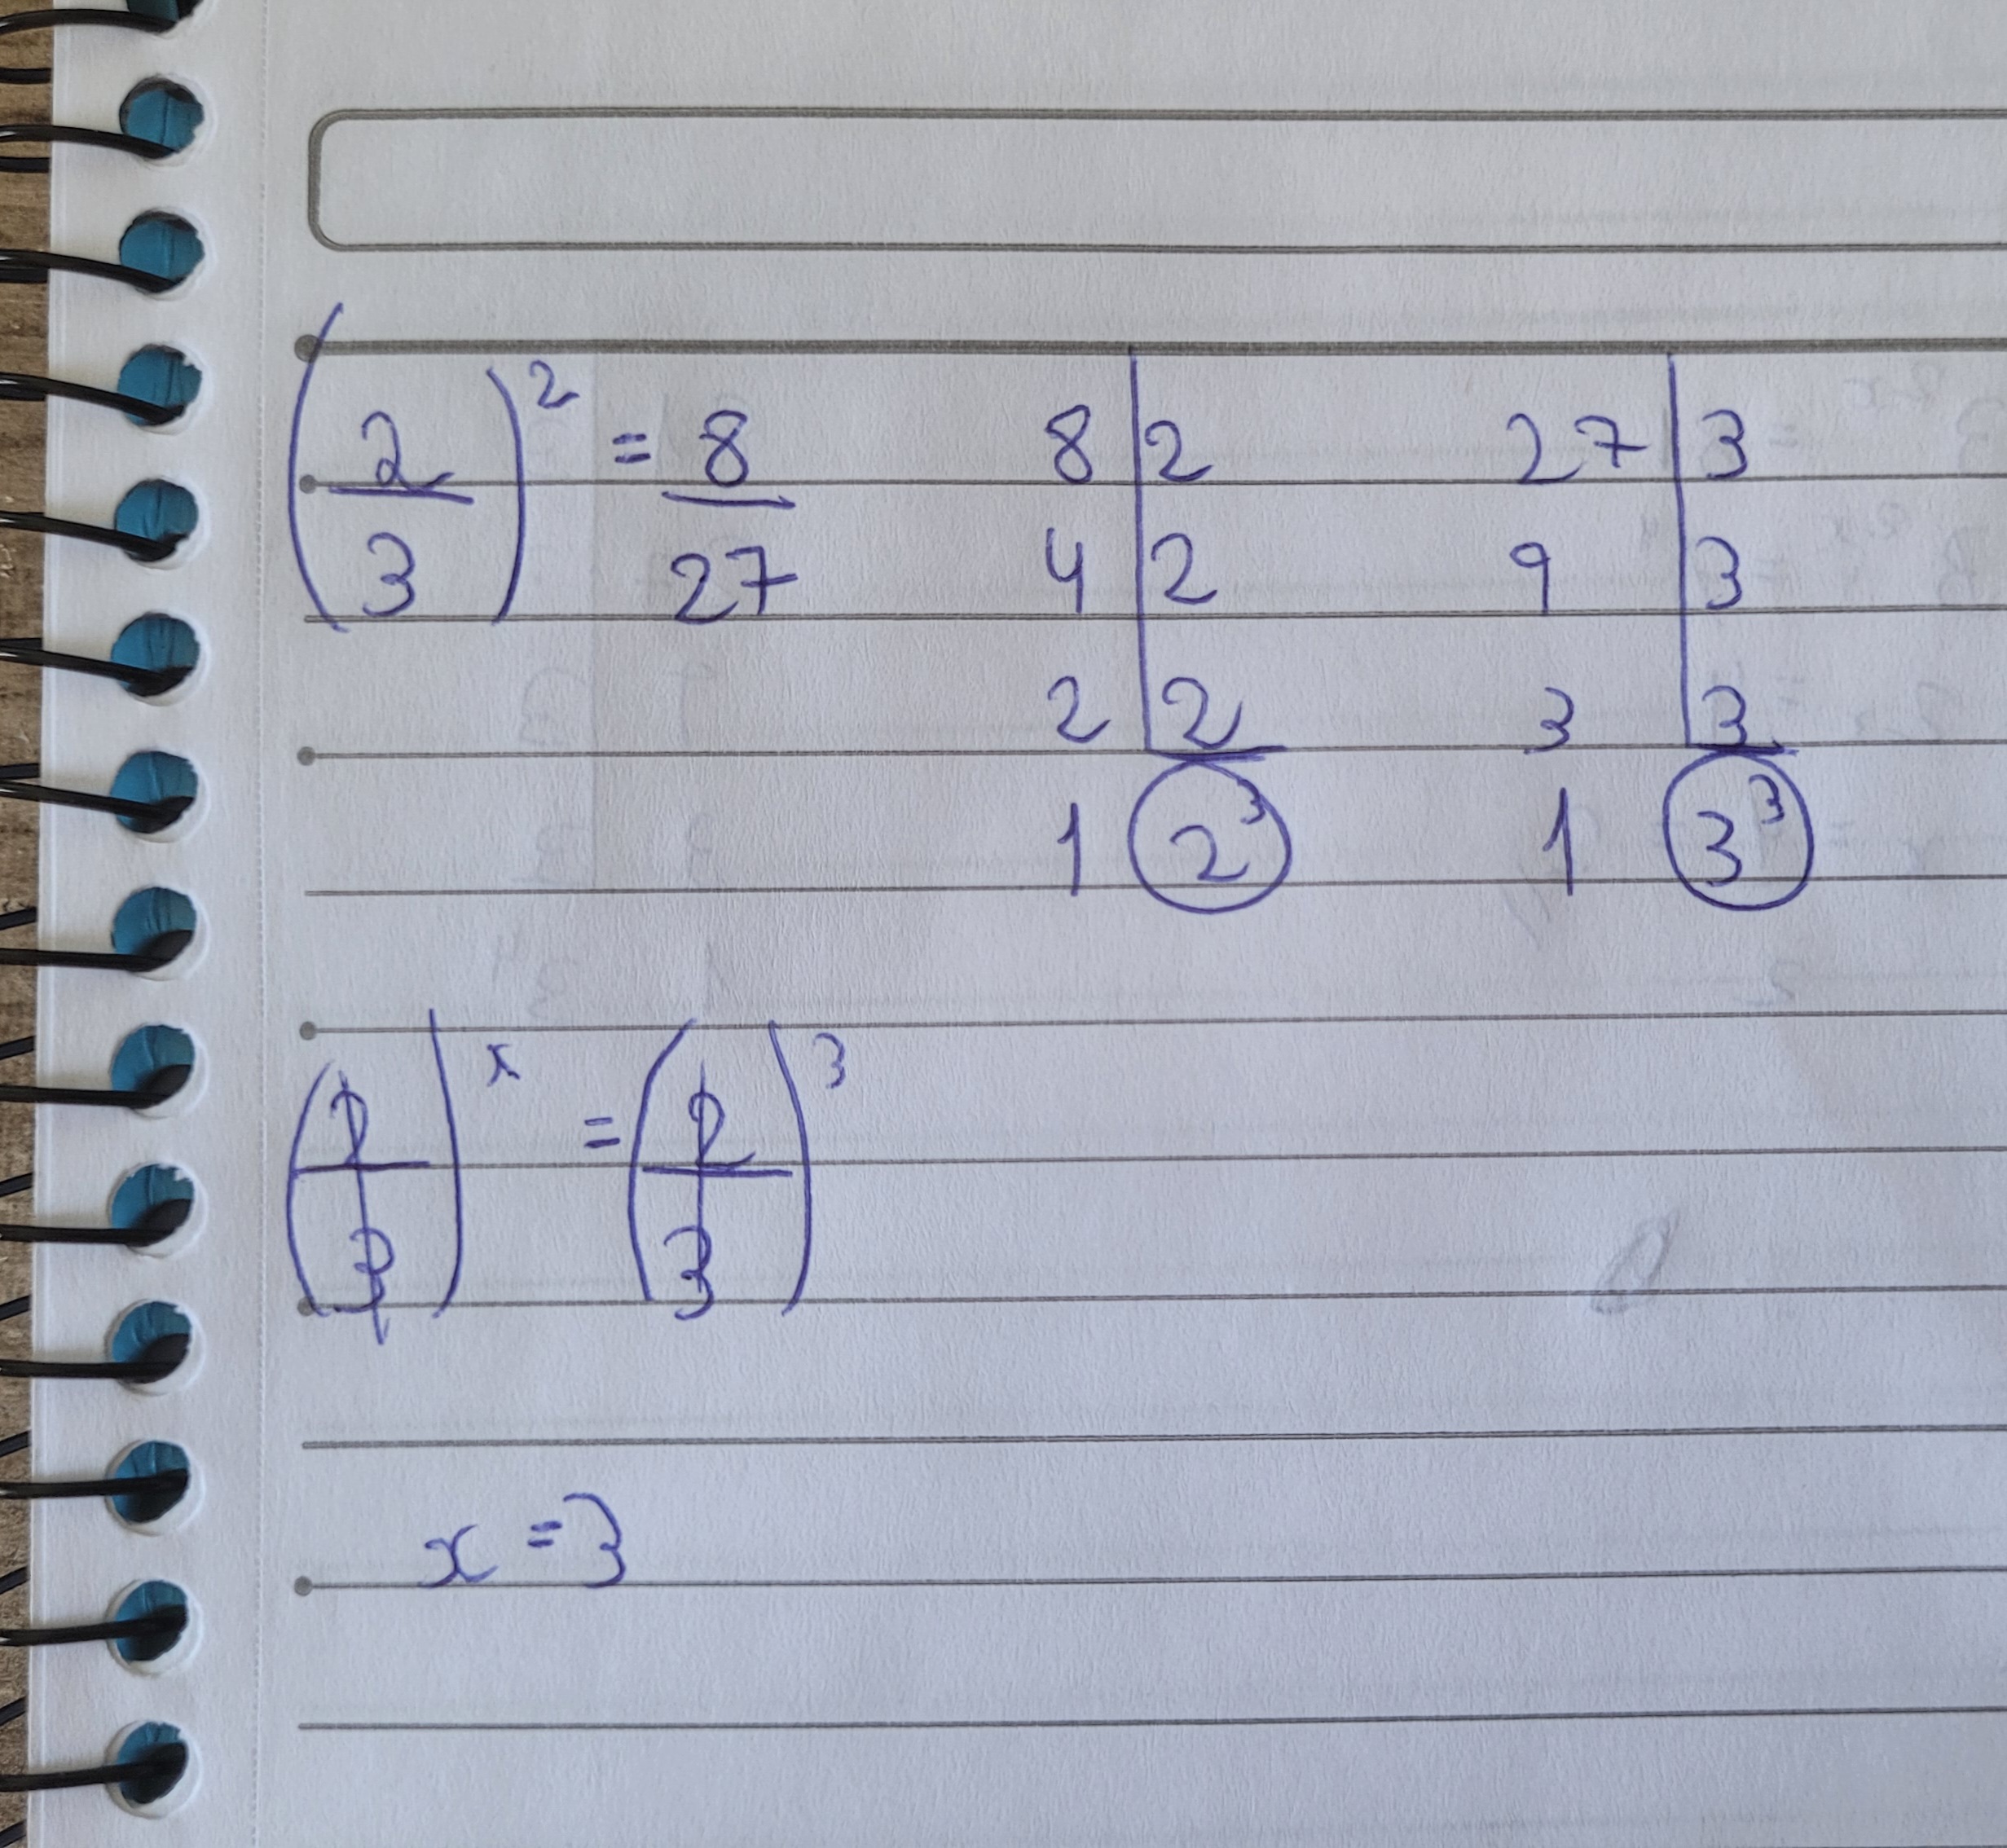 (2/3)² = 8/27
8 | 2
4 | 2
2 | 2
1 2³
27 | 3
9 | 3
3 | 3
1 3³
(2/3)ˣ = (2/3)³
x = 3